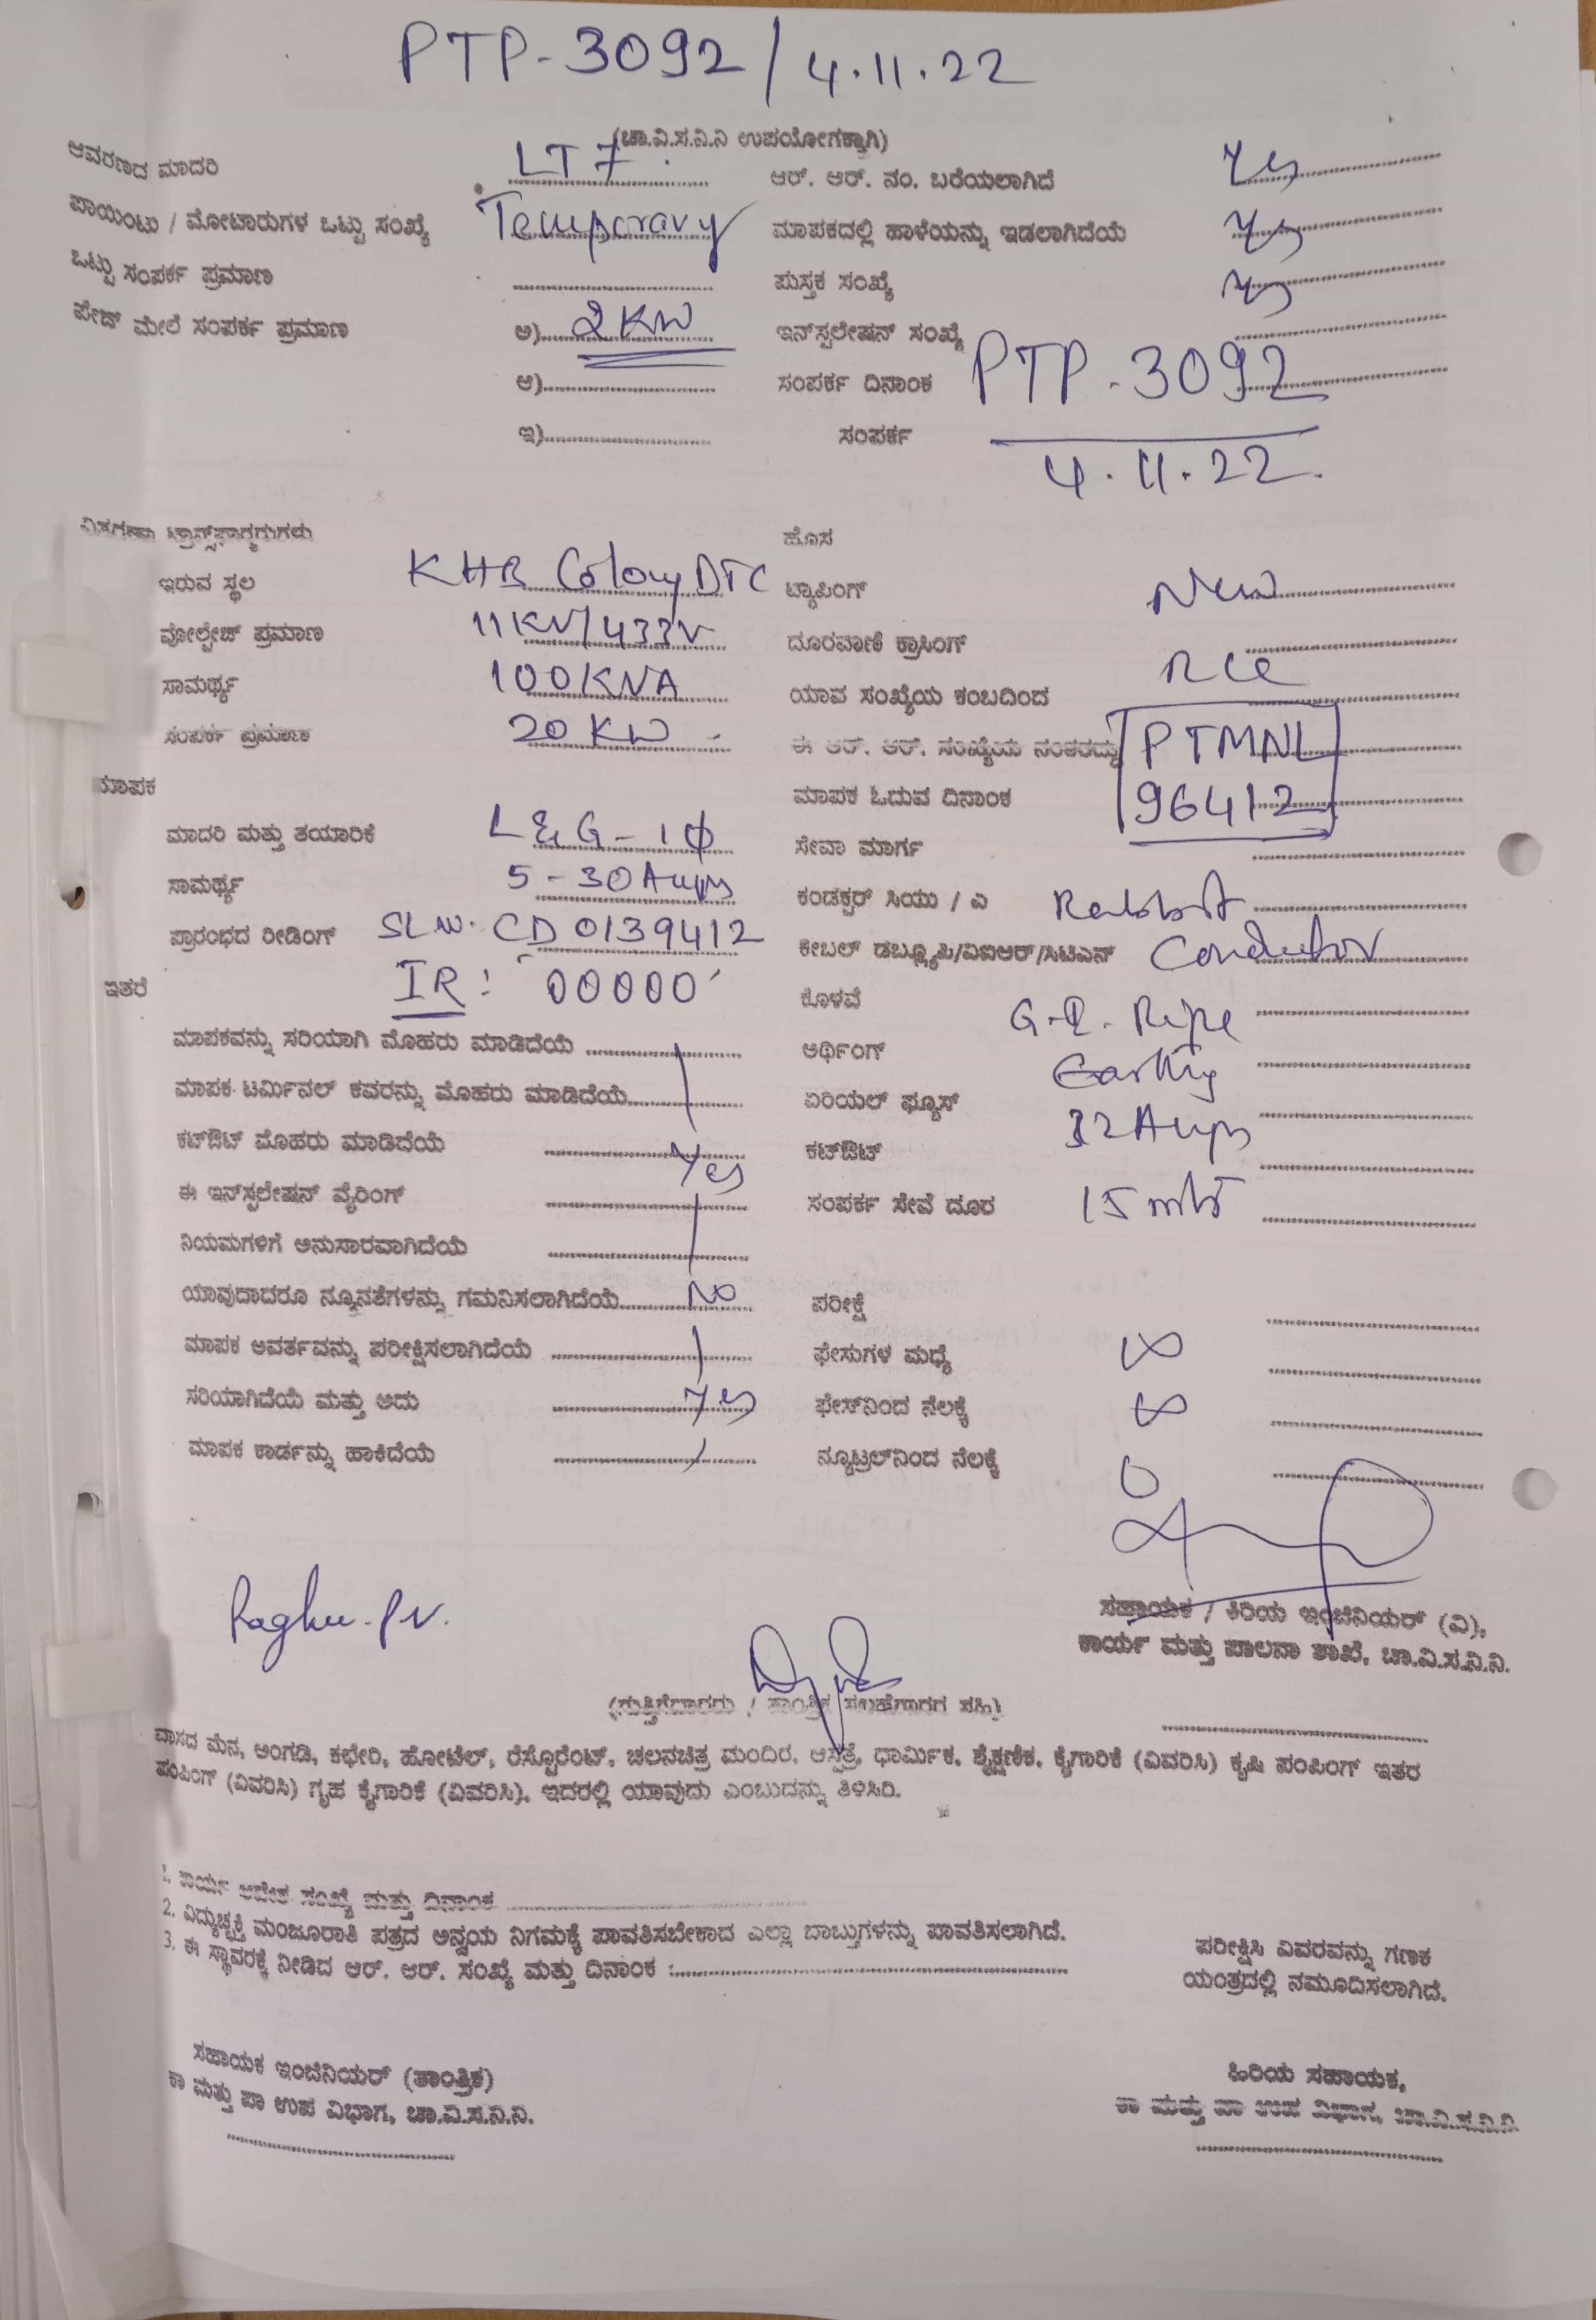 PTP-3092/4.11.22
(ಚಾ.ವಿ.ಸ.ನಿ.ನಿ ಉಪಯೋಗಕ್ಕಾಗಿ)
ಆವರಣದ ಮಾದರಿ LT7 ಆರ್. ಆರ್. ನಂ. ಬರೆಯಲಾಗಿದೆ Yes
ಪಾಯಿಂಟು / ಮೋಟಾರುಗಳ ಒಟ್ಟು ಸಂಖ್ಯೆ Temporary ಮಾಪಕದಲ್ಲಿ ಹಾಳೆಯನ್ನು ಇಡಲಾಗಿದೆಯೆ Yes
ಒಟ್ಟು ಸಂಪರ್ಕ ಪ್ರಮಾಣ ಪುಸ್ತಕ ಸಂಖ್ಯೆ Yes
ಪೇಜ್ ಮೇಲೆ ಸಂಪರ್ಕ ಪ್ರಮಾಣ ಅ) 2KW ಇನ್‌ಸ್ಟಲೇಷನ್ ಸಂಖ್ಯೆ
ಆ) ಸಂಪರ್ಕ ದಿನಾಂಕ PTP-3092
ಇ) ಸಂಪರ್ಕ 4.11.22.
ವಿತರಣಾ ಟ್ರಾನ್ಸ್‌ಫಾರ್ಮರುಗಳು ಹೊಸ
ಇರುವ ಸ್ಥಲ KHB Colony DTC ಟ್ಯಾಪಿಂಗ್ New
ವೋಲ್ಟೇಜ್ ಪ್ರಮಾಣ 11KV/433V ದೂರವಾಣಿ ಕ್ರಾಸಿಂಗ್
ಸಾಮರ್ಥ್ಯ 100KVA ಯಾವ ಸಂಖ್ಯೆಯ ಕಂಬದಿಂದ RCC
ಸಂಪರ್ಕ ಪ್ರಮಾಣ 20KW - ಈ ಆರ್. ಆರ್. ಸಂಖ್ಯೆಯ ನಂತರದ್ದು PTMNL
ಮಾಪಕ ಮಾಪಕ ಓದುವ ದಿನಾಂಕ 96412
ಮಾದರಿ ಮತ್ತು ತಯಾರಿಕೆ L&G-1ϕ ಸೇವಾ ಮಾರ್ಗ
ಸಾಮರ್ಥ್ಯ 5-30Amps ಕಂಡಕ್ಟರ್ ಸಿಯು / ಎ Rabbit
ಪ್ರಾರಂಭದ ರೀಡಿಂಗ್ SLNo. CD0139412 ಕೇಬಲ್ ಡಬ್ಲ್ಯೂಪಿ/ವಿಐಆರ್/ಸಿಟಿಎಸ್ Conductor
ಇತರೆ IR: '00000' ಕೊಳವೆ G.I. Pipe
ಮಾಪಕವನ್ನು ಸರಿಯಾಗಿ ಮೊಹರು ಮಾಡಿದೆಯೆ ಅರ್ಥಿಂಗ್ Earthing
ಮಾಪಕ ಟರ್ಮಿನಲ್ ಕವರನ್ನು ಮೊಹರು ಮಾಡಿದೆಯೆ ಏರಿಯಲ್ ಫ್ಯೂಸ್ 32Amps
ಕಟ್‌ಔಟ್ ಮೊಹರು ಮಾಡಿದೆಯೆ Yes ಕಟ್‌ಔಟ್
ಈ ಇನ್‌ಸ್ಟಲೇಷನ್ ವೈರಿಂಗ್ ಸಂಪರ್ಕ ಸೇವೆ ದೂರ 15mts
ನಿಯಮಗಳಿಗೆ ಅನುಸಾರವಾಗಿದೆಯೆ
ಯಾವುದಾದರೂ ನ್ಯೂನತೆಗಳನ್ನು ಗಮನಿಸಲಾಗಿದೆಯೆ No ಪರೀಕ್ಷೆ
ಮಾಪಕ ಆವರ್ತವನ್ನು ಪರೀಕ್ಷಿಸಲಾಗಿದೆಯೆ ಫೇಸುಗಳ ಮಧ್ಯೆ ∞
ಸರಿಯಾಗಿದೆಯೆ ಮತ್ತು ಅದು Yes ಫೇಸ್‌ನಿಂದ ನೆಲಕ್ಕೆ ∞
ಮಾಪಕ ಕಾರ್ಡನ್ನು ಹಾಕಿದೆಯೆ ನ್ಯೂಟ್ರಲ್‌ನಿಂದ ನೆಲಕ್ಕೆ 0
Raghu.P.V.
ಸಹಾಯಕ / ಕಿರಿಯ ಇಂಜಿನಿಯರ್ (ವಿ),
ಕಾರ್ಯ ಮತ್ತು ಪಾಲನಾ ಶಾಖೆ, ಚಾ.ವಿ.ಸ.ನಿ.ನಿ.
(ಗುತ್ತಿಗೆದಾರರು / ತಾಂತ್ರಿಕ ಸಲಹೆಗಾರರ ಸಹಿ)
ವಾಸದ ಮನೆ, ಅಂಗಡಿ, ಕಛೇರಿ, ಹೋಟೆಲ್, ರೆಸ್ಟೊರೆಂಟ್, ಚಲನಚಿತ್ರ ಮಂದಿರ, ಆಸ್ಪತ್ರೆ, ಧಾರ್ಮಿಕ, ಶೈಕ್ಷಣಿಕ, ಕೈಗಾರಿಕೆ (ವಿವರಿಸಿ) ಕೃಷಿ ಪಂಪಿಂಗ್ ಇತರ
ಪಂಪಿಂಗ್ (ವಿವರಿಸಿ) ಗೃಹ ಕೈಗಾರಿಕೆ (ವಿವರಿಸಿ), ಇದರಲ್ಲಿ ಯಾವುದು ಎಂಬುದನ್ನು ತಿಳಿಸಿರಿ.
1. ಕಾರ್ಯ ಆದೇಶ ಸಂಖ್ಯೆ ಮತ್ತು ದಿನಾಂಕ
2. ವಿದ್ಯುಚ್ಛಕ್ತಿ ಮಂಜೂರಾತಿ ಪತ್ರದ ಅನ್ವಯ ನಿಗಮಕ್ಕೆ ಪಾವತಿಸಬೇಕಾದ ಎಲ್ಲಾ ಬಾಬ್ತುಗಳನ್ನು ಪಾವತಿಸಲಾಗಿದೆ.
3. ಈ ಸ್ಥಾವರಕ್ಕೆ ನೀಡಿದ ಆರ್. ಆರ್. ಸಂಖ್ಯೆ ಮತ್ತು ದಿನಾಂಕ :
ಪರೀಕ್ಷಿಸಿ ವಿವರವನ್ನು ಗಣಕ
ಯಂತ್ರದಲ್ಲಿ ನಮೂದಿಸಲಾಗಿದೆ.
ಸಹಾಯಕ ಇಂಜಿನಿಯರ್ (ತಾಂತ್ರಿಕ)
ಕಾ ಮತ್ತು ಪಾ ಉಪ ವಿಭಾಗ, ಚಾ.ವಿ.ಸ.ನಿ.ನಿ.
ಹಿರಿಯ ಸಹಾಯಕ,
ಕಾ ಮತ್ತು ಪಾ ಉಪ ವಿಭಾಗ, ಚಾ.ವಿ.ಸ.ನಿ.ನಿ